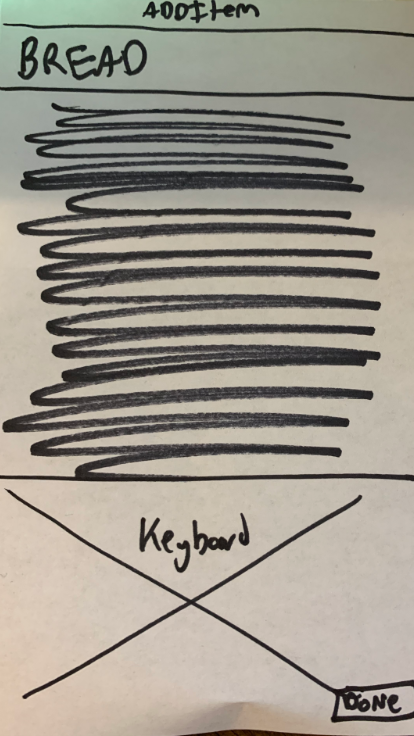 ADDItem
BREAD
Keyboard
DONE